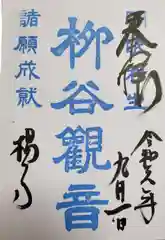 奉拝
令和年
九月一日
柳谷觀音
諸願成就
楊谷